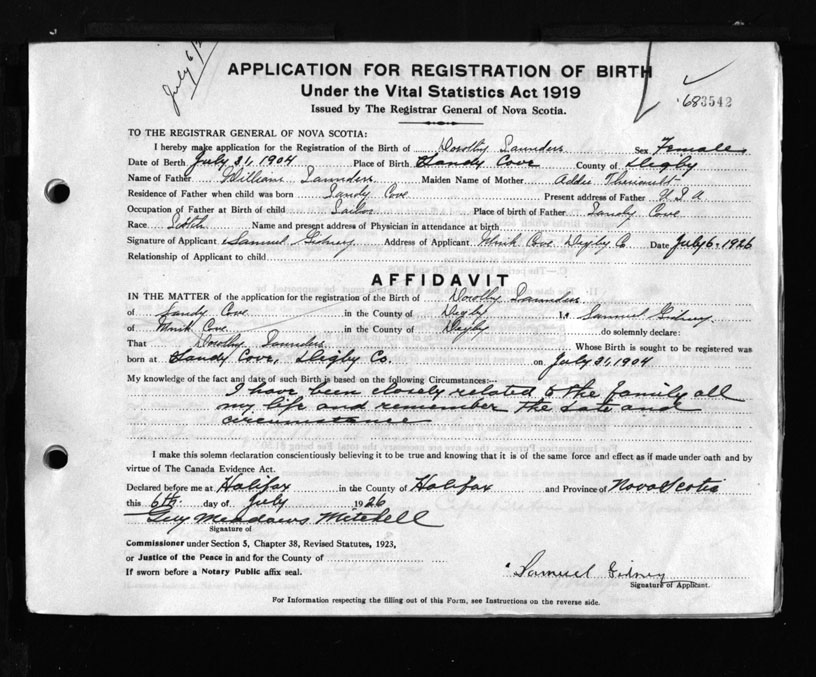 July 6/
APPLICATION FOR REGISTRATION OF BIRTH
Under the Vital Statistics Act 1919
683542
Issued by The Registrar General of Nova Scotia.
TO THE REGISTRAR GENERAL OF NOVA SCOTIA:
I hereby make application for the Registration of the Birth of Dorothy Saunders Sex Female
Date of Berth July 31, 1904 Place of Birth Sandy Cove County of Digby
Name of Father William Saunders Maiden Name of Mother Addie Theriault
Residence of Father when child was born Sandy Cove Present address of Father U S A
Occupation of Father at Birth of child Sailor Place of birth of Father Sandy Cove
Race Scotch Name and present address of Physician in attendance at birth
Signature of Applicant Samuel Gidney Address of Applicant Mink Cove Digby Co Date July 6, 1926
Relationship of Applicant to child
AFFIDAVIT
IN THE MATTER of the application for the registration of the Birth of Dorothy Saunders
of Sandy Cove in the County of Digby I, Samuel Gidney
of Mink Cove in the County of Digby do solemnly declare:
That Dorothy Saunders Whose Birth is sought to be registered was
born at Sandy Cove, Digby Co. on July 31, 1904
My knowledge of the fact and date of such Birth is based on the following Circumstances:—
I have been closely related to the family all
my life and remember the date and
circumstance
I make this solemn declaration conscientiously believing it to be true and knowing that it is of the same force and effect as if made under oath and by
virtue of The Canada Evidence Act.
Declared before me at Halifax in the County of Halifax and Province of Nova Scotia
this 6th day of July 1926
Guy Meadows Mitchell
Signature of
Commissioner under Section 5, Chapter 38, Revised Statutes, 1923,
or Justice of the Peace in and for the County of
If sworn before a Notary Public affix seal.
Samuel Gidney
Signature of Applicant.
For Information respecting the filling out of this Form, see Instructions on the reverse side.